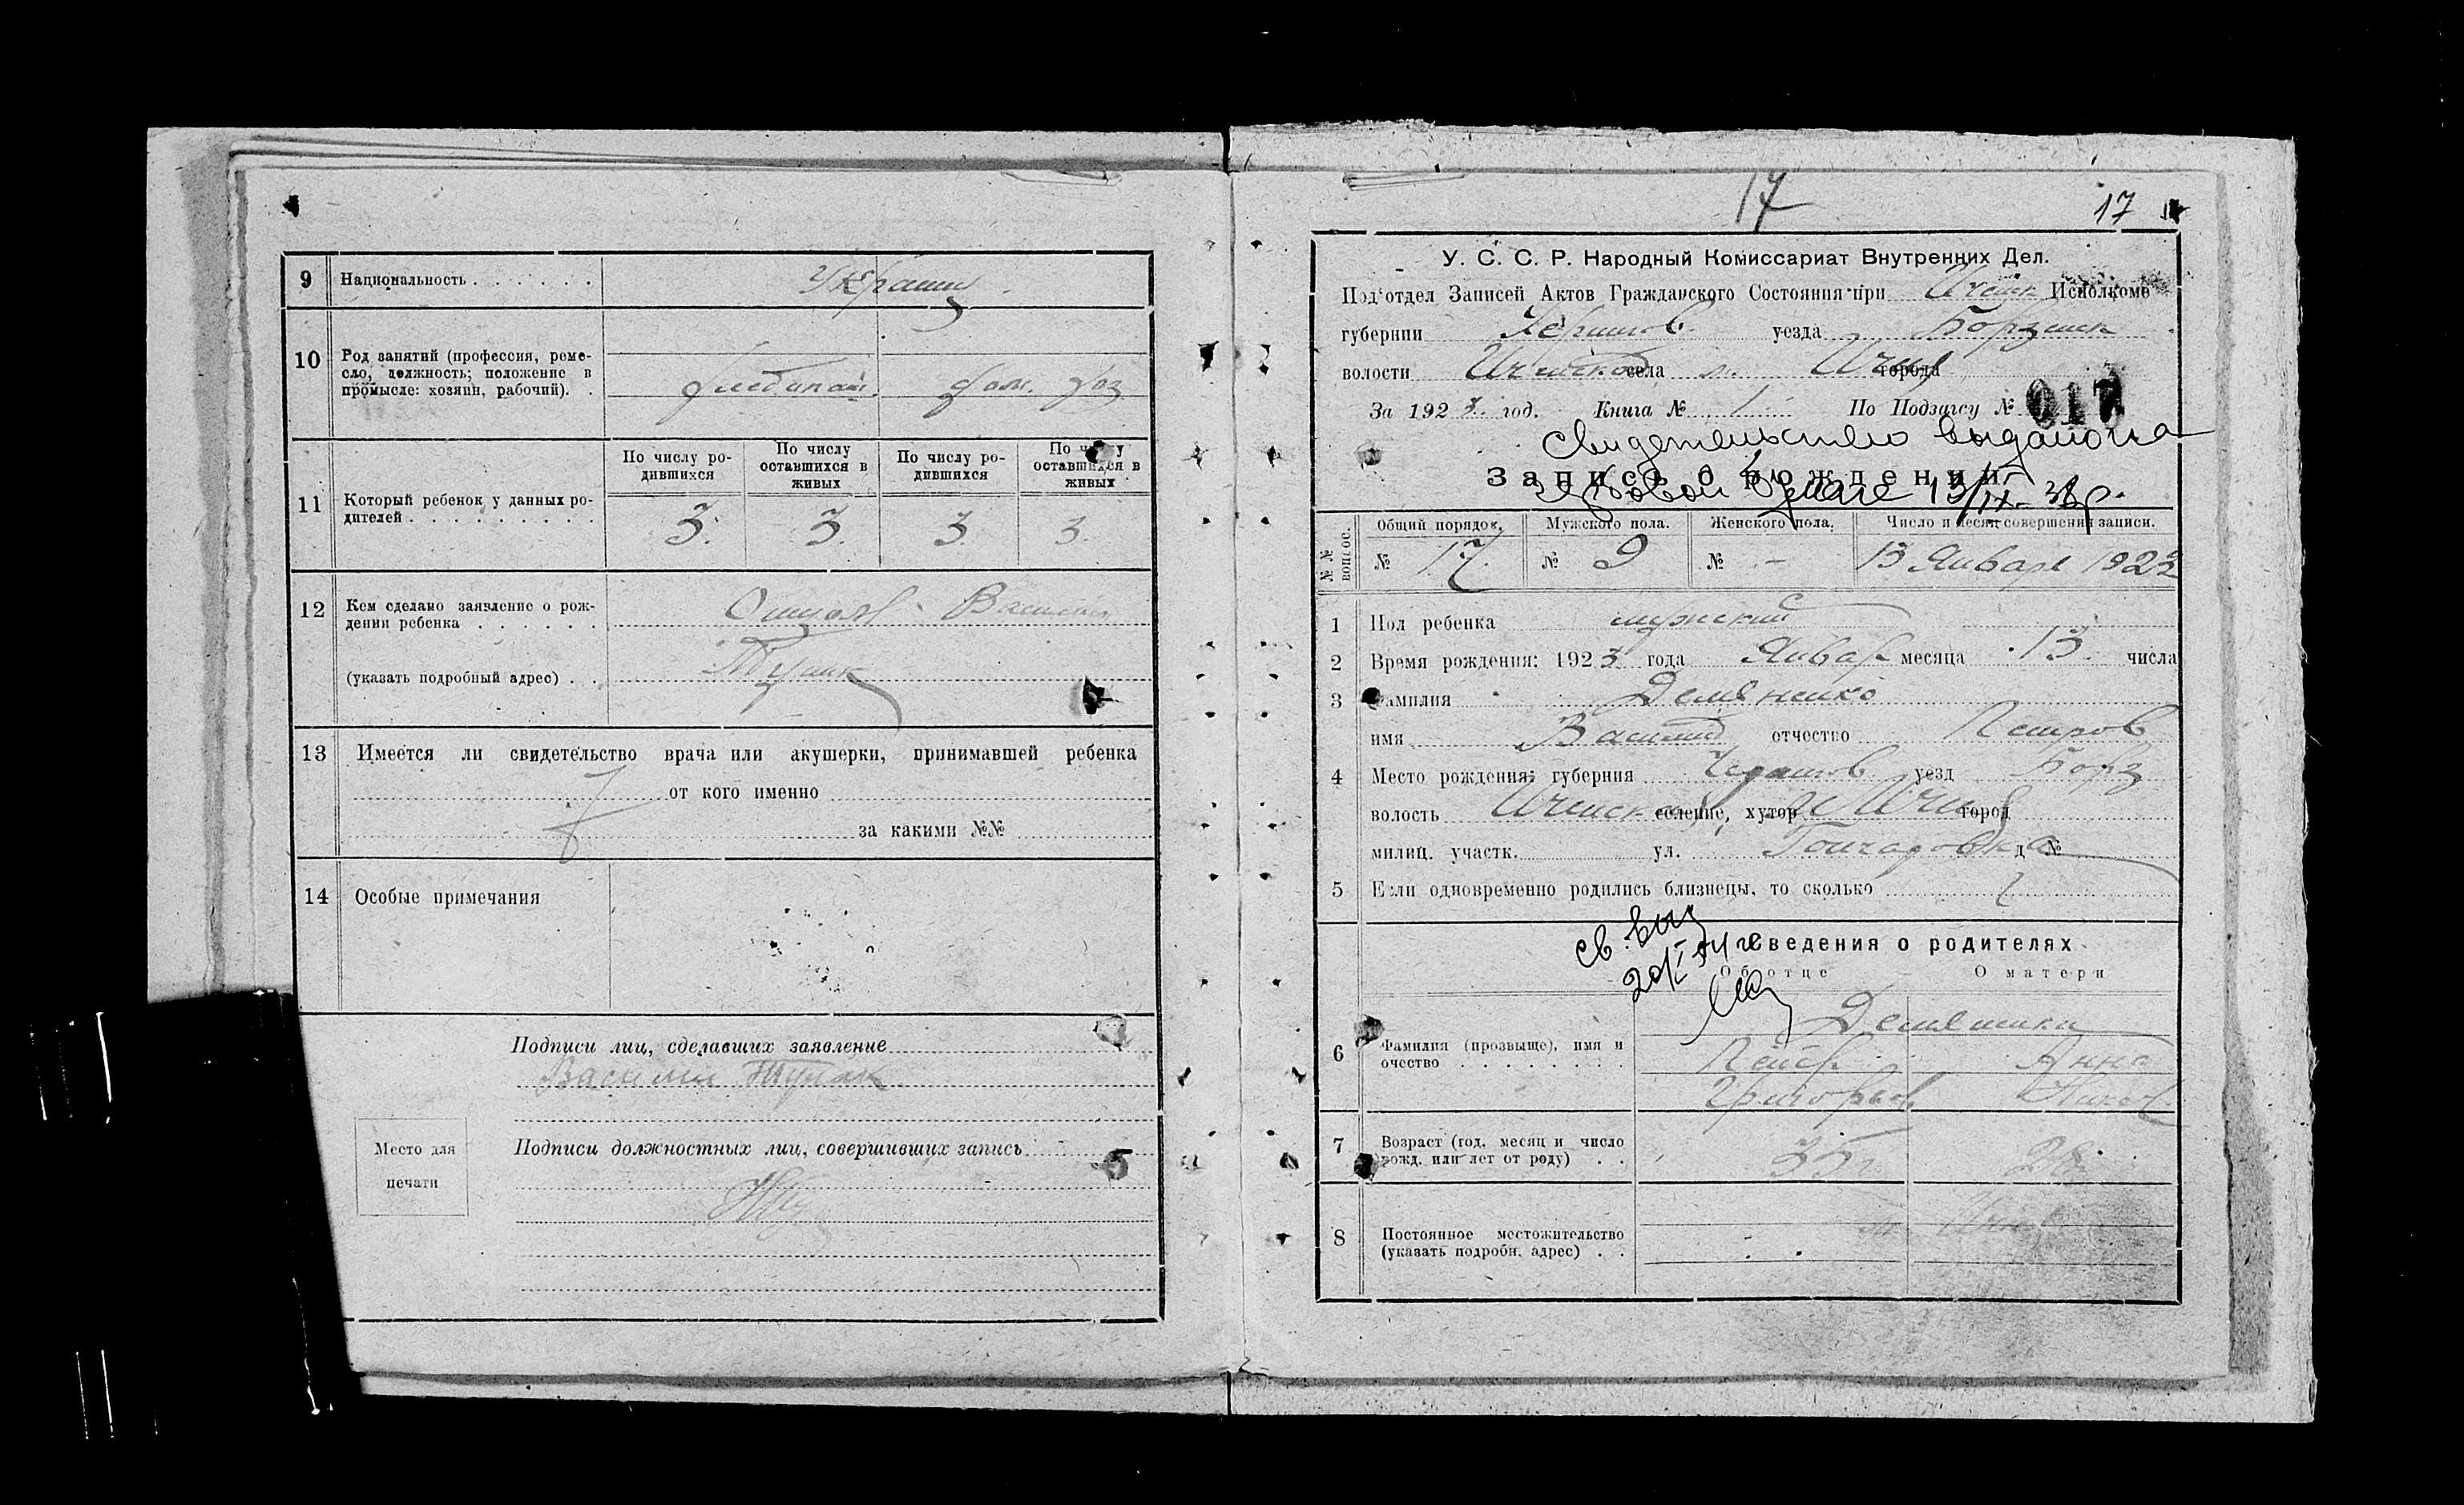 9 Национальность Украинц
10 Род занятий (профессия, реме-
сло, должность; положение в
промысле: хозяин, рабочий). дом. хоз
11 Который ребенок у данных ро-
дителей
По числу ро-
дившихся
По числу
оставшихся в
живых
По числу ро-
дившихся
По числу
оставшихся в
живых
3. 3. 3. 3.
12 Кем сделано заявление о рож-
дении ребенка
(указать подробный адрес)
13 Имеется ли свидетельство врача или акушерки, принимавшей ребенка
от кого именно
за какими №№
14 Особые примечания
Подписи лиц, сделавших заявление
Василий
Место для
печати
Подписи должностных лиц, совершивших запись
17
17
У. С. С. Р. Народный Комиссариат Внутренних Дел.
Под'отдел Записей Актов Гражданского Состояния при Ичен Исполкоме
губернии Чернигов уезда Борзенск
волости Иченской села м. Ичня города
За 1923 год. Книга № 1 По Подзагсу № 017
свидетельство выдано на
Запись о рождении
гербовой бумаге 13/IX-
№№ вопрос.
Общий порядок. Мужского пола. Женского пола. Число и месяц совершения записи.
№ 17. № 9 № - 13 Января 1923
1 Пол ребенка мужский
2 Время рождения: 1923 года Январ месяца 13 числа
3 Фамилия Демяненко
имя Василий отчество Петров
4 Место рождения: губерния Чернигов уезд Борз
волость Иченск селение, хутор м Ичня город
милиц. участк. ул. Гончаровка д №
5 Если одновременно родились близнецы, то сколько
св. выд
20/I 54 г
Сведения о родителях
Об отце О матери
6 Фамилия (прозвище), имя и
очество
Демяненки
Петр Анна
Григорьев
7 Возраст (год, месяц и число
рожд. или лет от роду) 35 28
8 Постоянное местожительство
(указать подробн. адрес) м. Ичня